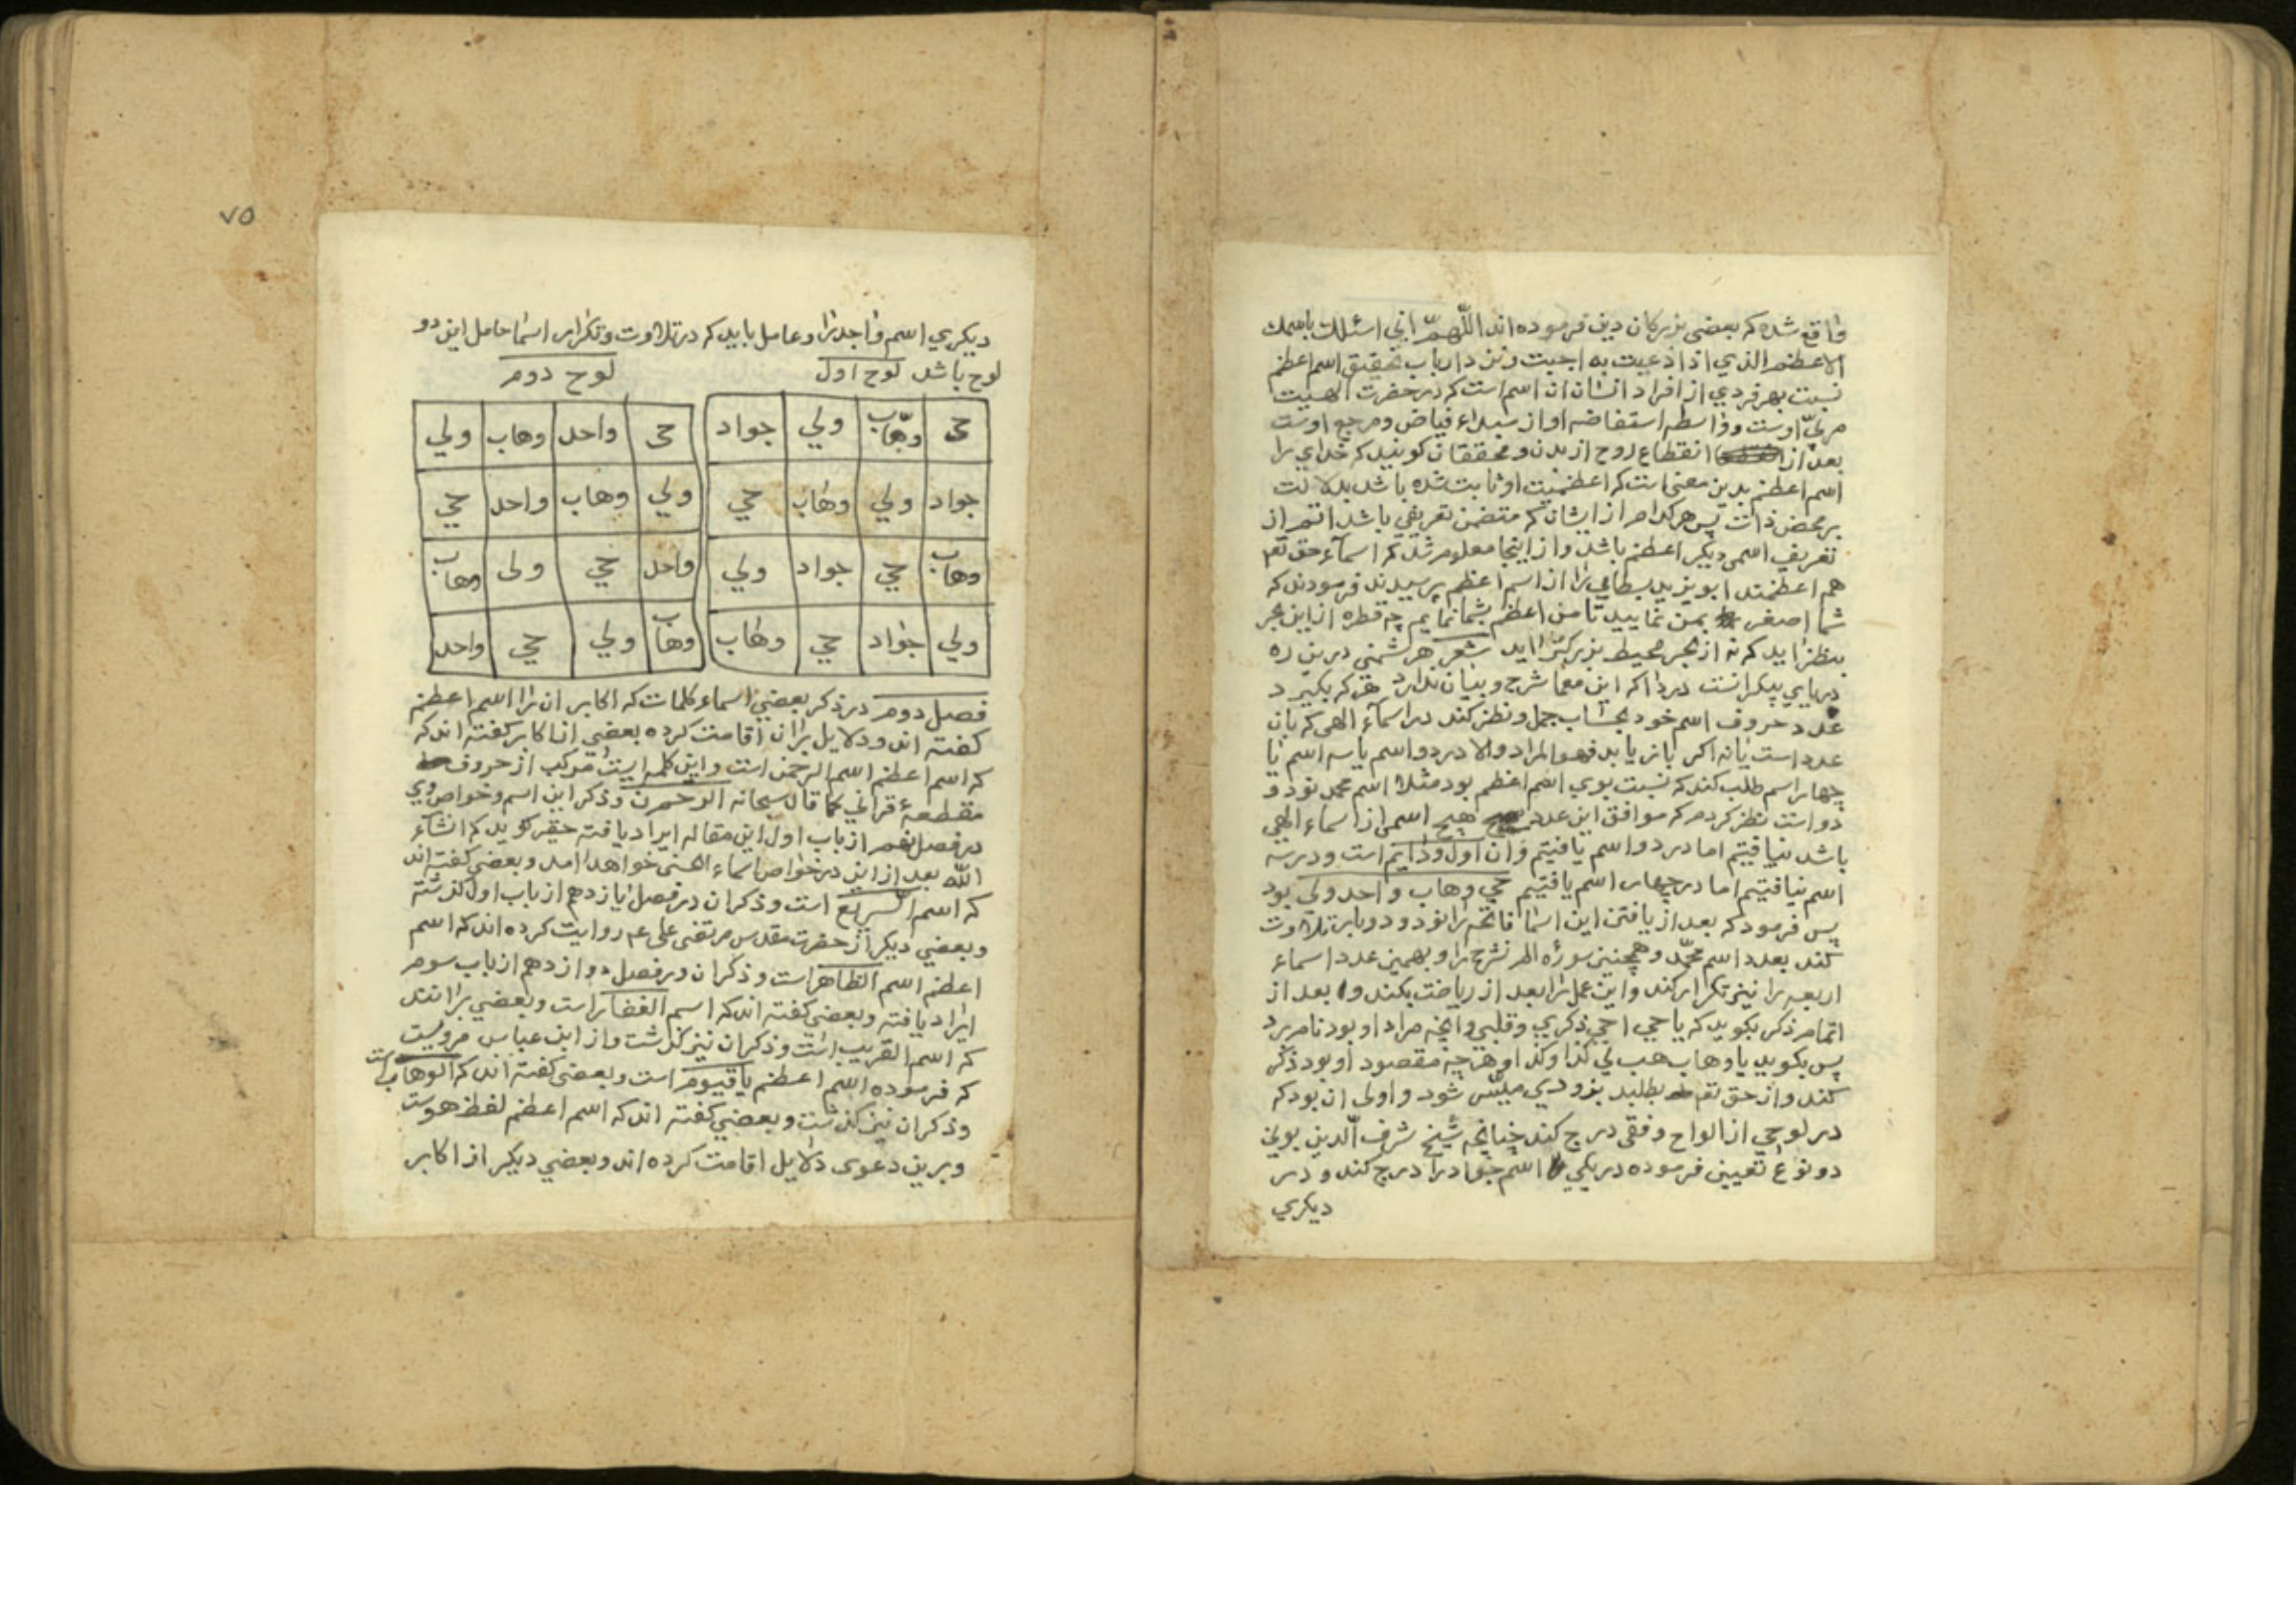 واقع شده که بعضی بزرکان دین فرموده اند اللّهمّ انی اسئلك باسمك
الاعظم الذي اذا دعيت به اجبت ونزد ارباب تحقیق اسم اعظم
نسبت بهر فردي از افراد انسان ان اسم است که در حضرت الهیت
مربّی اوست وواسطه استفاضه او از مبداء فیاض ومرجع اوست
بعد از انقطاع روح از بدن ومحققان کویند که خدای را
اسم اعظم بدین معنی است که اعظمیت او ثابت شده باشد بدلالت
بر محض ذات پس هر کدام از ایشان که متضمن تعریفی باشد اتم از
تعریف اسمی دیکر اعظم باشد واز اینجا معلوم شد که اسمآء حق تعم
هم اعظمند ابویزید بسطامی را از اسم اعظم پرسیدند فرمودند که
شما اصغر بمن نمایید تا من اعظم بشما نمایم چه قطره از این بحر
بنظر اید که نه از بحر محیط بزرکتر اید شعر هر شبنمی درین ره
دریای بیکرانست دردا که این معما شرح وبیان ندارد هر که بکیرد
عدد حروف اسم خود بحساب جمل ونظر کند در اسمآء الهی که بان
عدد است یا نه اکر باز یابد فهو المراد والا در دو اسم یا سه اسم یا
چهار اسم طلب کند که نسبت بوی اسم اعظم بود مثلا اسم محمد نود و
دو است نظر کردم که موافق این عدد هیچ اسمی از اسماء الهی
باشد نیافتیم اما در دو اسم یافتیم وان اول ودایم است ودر سه
اسم نیافتیم اما در چهار اسم یافتیم حي وهاب واحد ولي بود
پس فرمود که بعد از یافتن این اسما فاتحه را نود و دو بار تلاوت
کند بعدد اسم محمّد وهمچنین سورهٔ الم نشرح را وبهمین عدد اسماء
اربعه را نیز تکرار کند واین عمل را بعد از ریاضت بکند و بعد از
اتمام ذکر بکوید که یا حي احي ذکري وقلبي وانچه مراد او بود نام برد
پس بکوید یا وهاب هب لي کذا وکذا وهر چه مقصود او بود ذکر
کند واز حق تعم بطلبد بزودي میسّر شود واولی ان بود که
در لوحی از الواح وفقی درج کند چنانچه شیخ شرف الّدین بونی
دو نوع تعیین فرموده در یکی اسم جواد را درج کند ودر
دیکري
٧٥
دیکري اسم واحد را وعامل باید که در تلاوت وتکرار اسما حامل این دو
لوح باشد لوح اول لوح دوم
حی وهّاب ولي جواد
جواد ولي وهاب حي
وهاب حي جواد ولي
ولي جواد حي وهاب
حی واحد وهاب ولي
ولي وهاب واحد حي
واحد حي ولی وهاب
وهاب ولي حي واحد
فصل دوم در ذکر بعضی اسماء کلمات که اکابر ان را اسم اعظم
کفته اند ودلایل بران اقامت کرده بعضی از اکابر کفته اند که
که اسم اعظم اسم الرحمن است واین کلمه ایست مرکب از حروف
مقطعهٔ قرآنی کما قال سبحانه الر حم ن وذکر این اسم وخواص وي
در فصل نهم از باب اول این مقاله ایراد یافته حقیر کوید که انشآء
الله بعد از این در خواص اسماء الحسنی خواهد امد وبعضی کفته اند
که اسم السریع است وذکر ان در فصل یازدهم از باب اول کذشته
وبعضي دیکر از حضرت مقدس مرتضی علی عم روایت کرده اند که اسم
اعظم اسم الظاهر است وذکر ان در فصل دوازدهم از باب سوم
ایراد یافته وبعضی کفته اند که اسم الغفار است وبعضي برانند
که اسم القریب است وذکر ان نیز کذشت واز ابن عباس مرویست
که فرموده اسم اعظم یا قیوم است وبعضی کفته اند که الوهاب است
وذکر ان نیز کذشت وبعضي کفته اند که اسم اعظم لفظ هوست
وبرین دعوی دلایل اقامت کرده اند وبعضي دیکر از اکابر